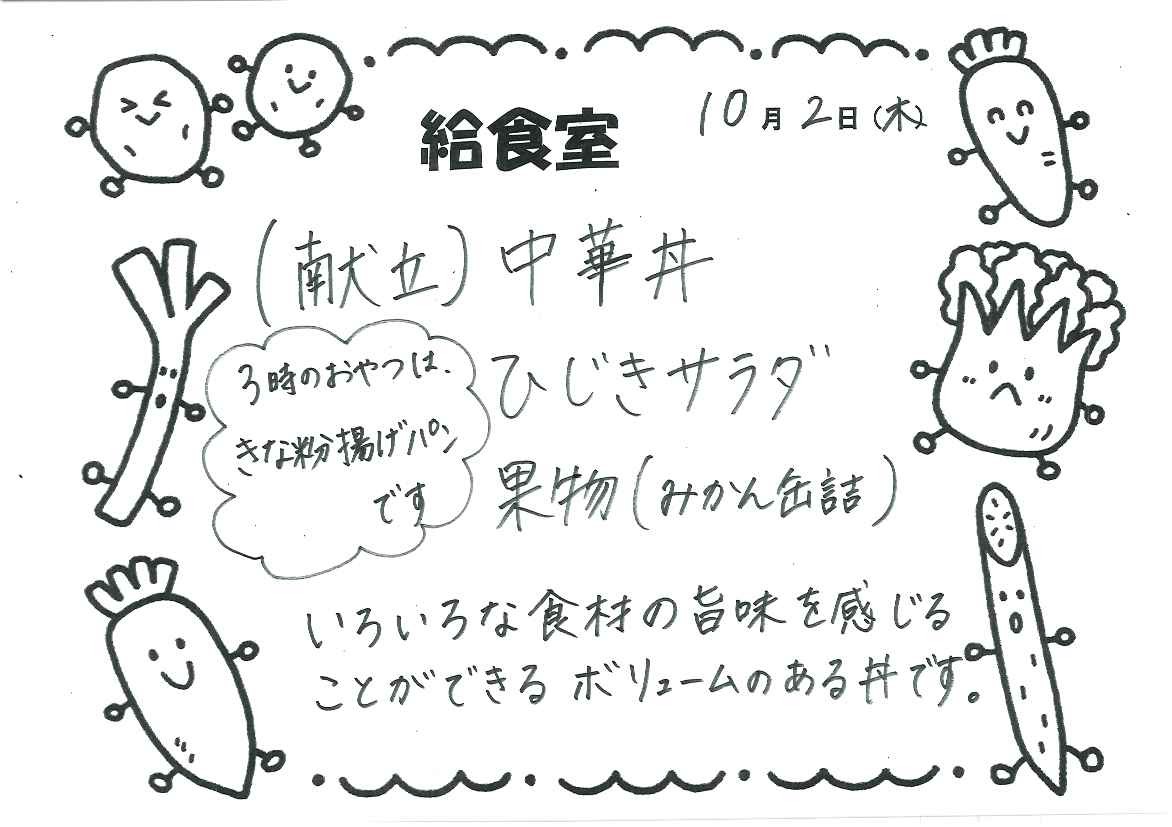 給食室
10月2日(木)
(献立)中華丼
ひじきサラダ
果物(みかん缶詰)
3時のおやつは、
きな粉揚げパン
です
いろいろな食材の旨味を感じる
ことができるボリュームのある丼です。